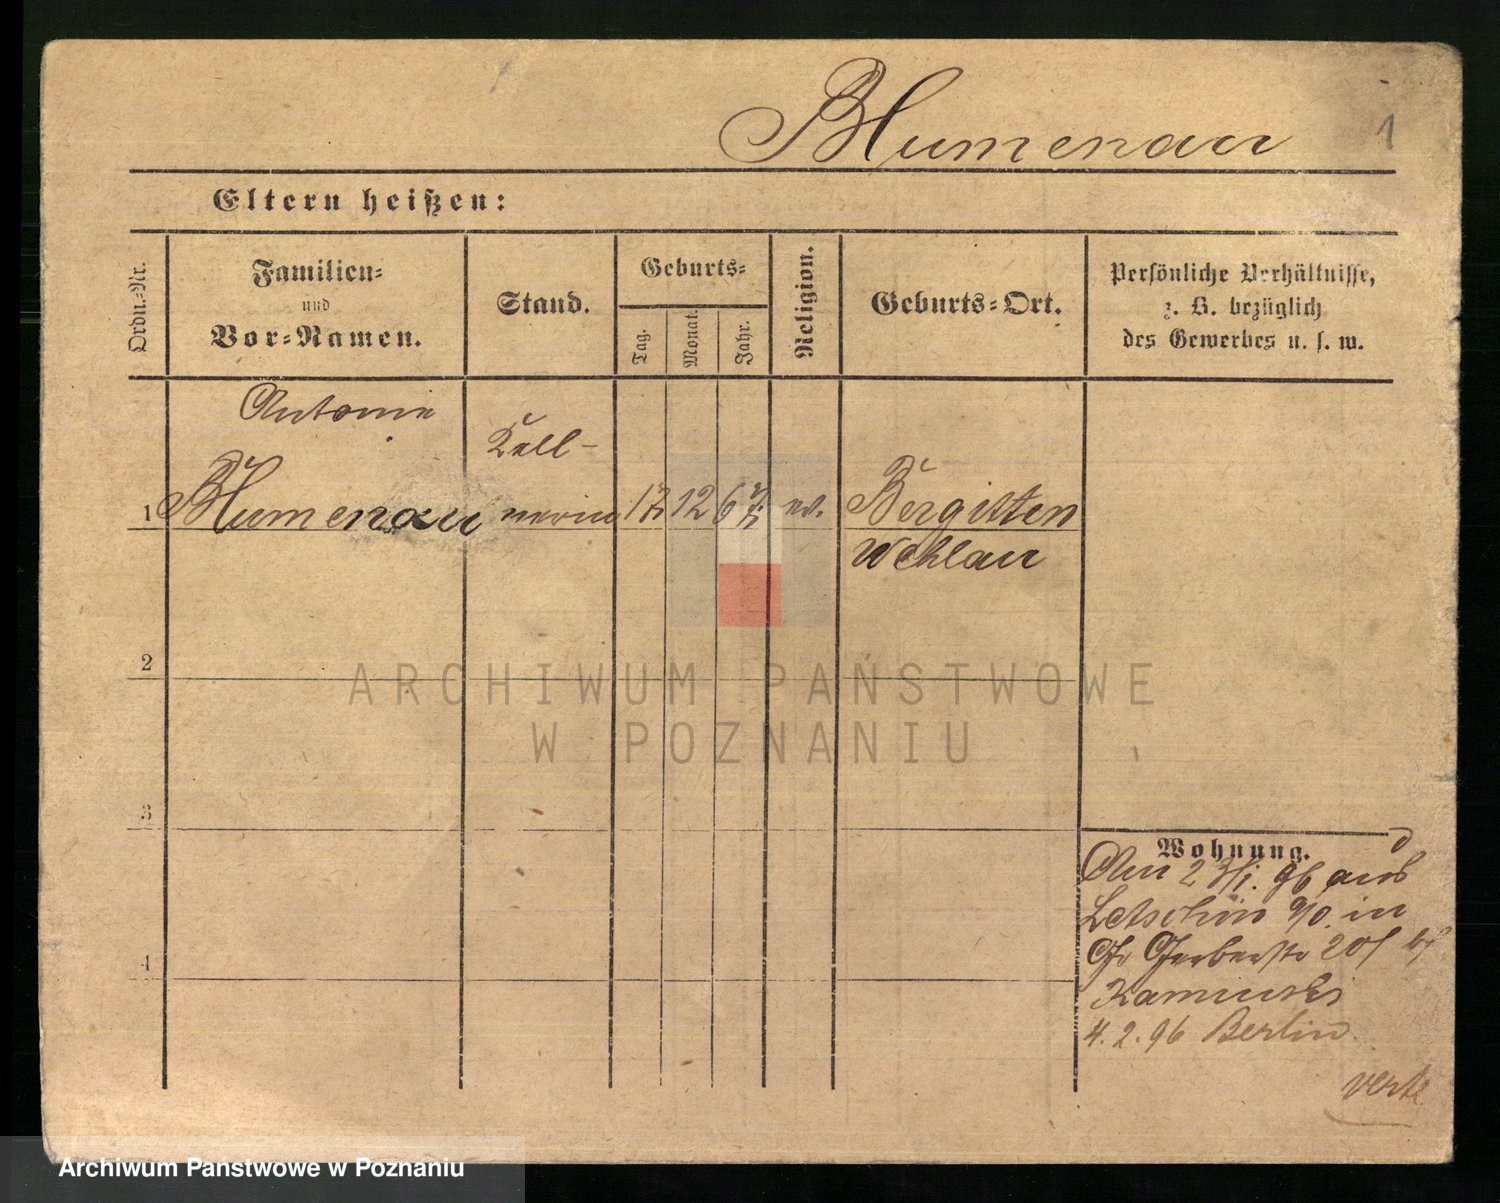 Blumenau 1
Eltern heißen:
Ordn.-Nr.
Familien-
und
Vor-Namen.
Stand.
Geburts-
Tag.
Monat.
Jahr.
Religion.
Geburts-Ort.
Persönliche Verhältnisse,
z. B. bezüglich
des Gewerbes u. s. w.
Antonie
Kell-
1 Blumenau nerin 17 12 67 ev. Bergitten
Wehlau
2
ARCHIWUM PAŃSTWOWE
W POZNANIU
3
Wohnung.
Am 23/1. 96 aus
Letschin in
Gr Gerberstr 20 bei
Kaminski
4. 2. 96 Berlin.
4
verte
Archiwum Państwowe w Poznaniu